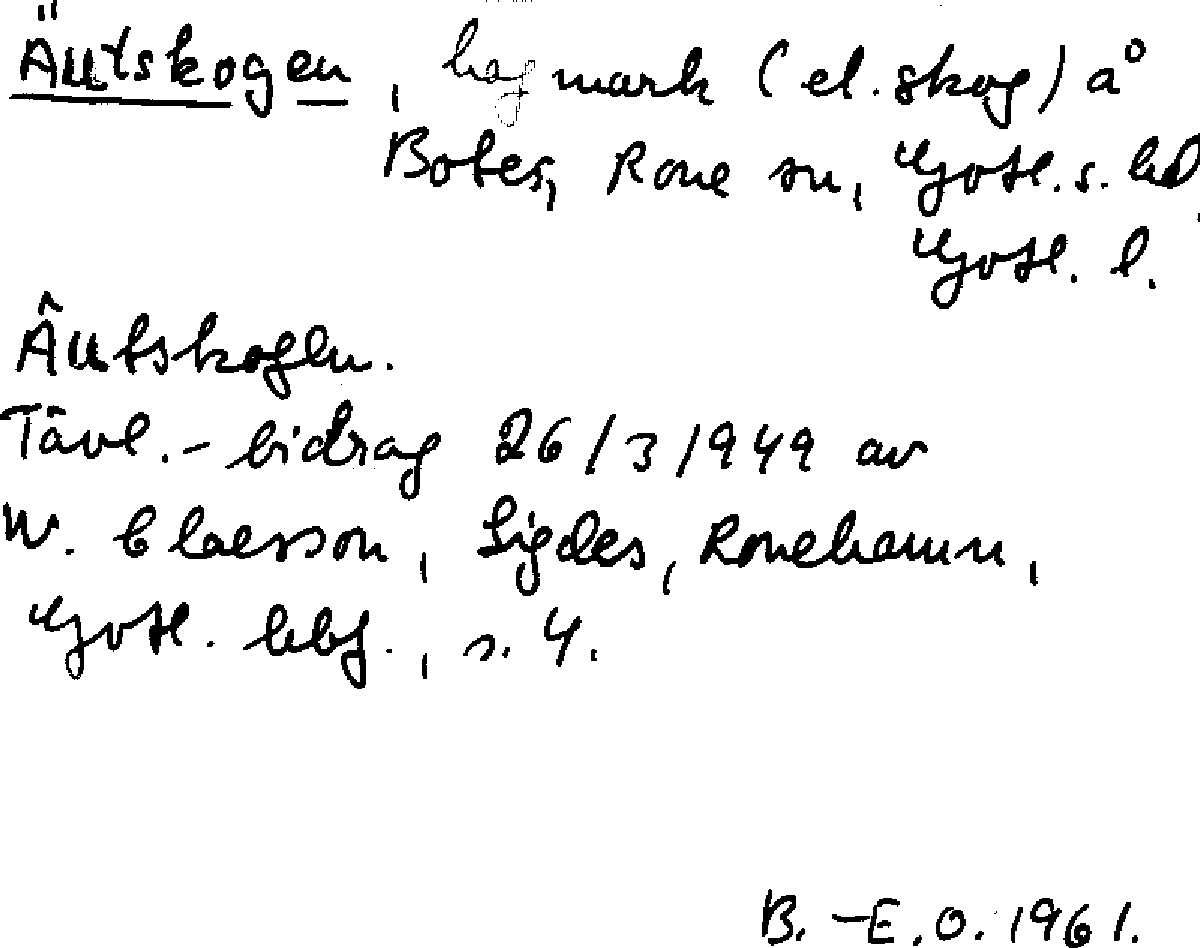 Äutskogen, hagmark (el. skog) å
Botes, Rone sn, Gotl. s. hd,
Gotl. l.
Äutskogen.
Tävl.-bidrag 26/3 1949 av
W. Claesson, Sigdes, Ronehamn,
Gotl. hbf., s. 4.
B.-E.O. 1961.